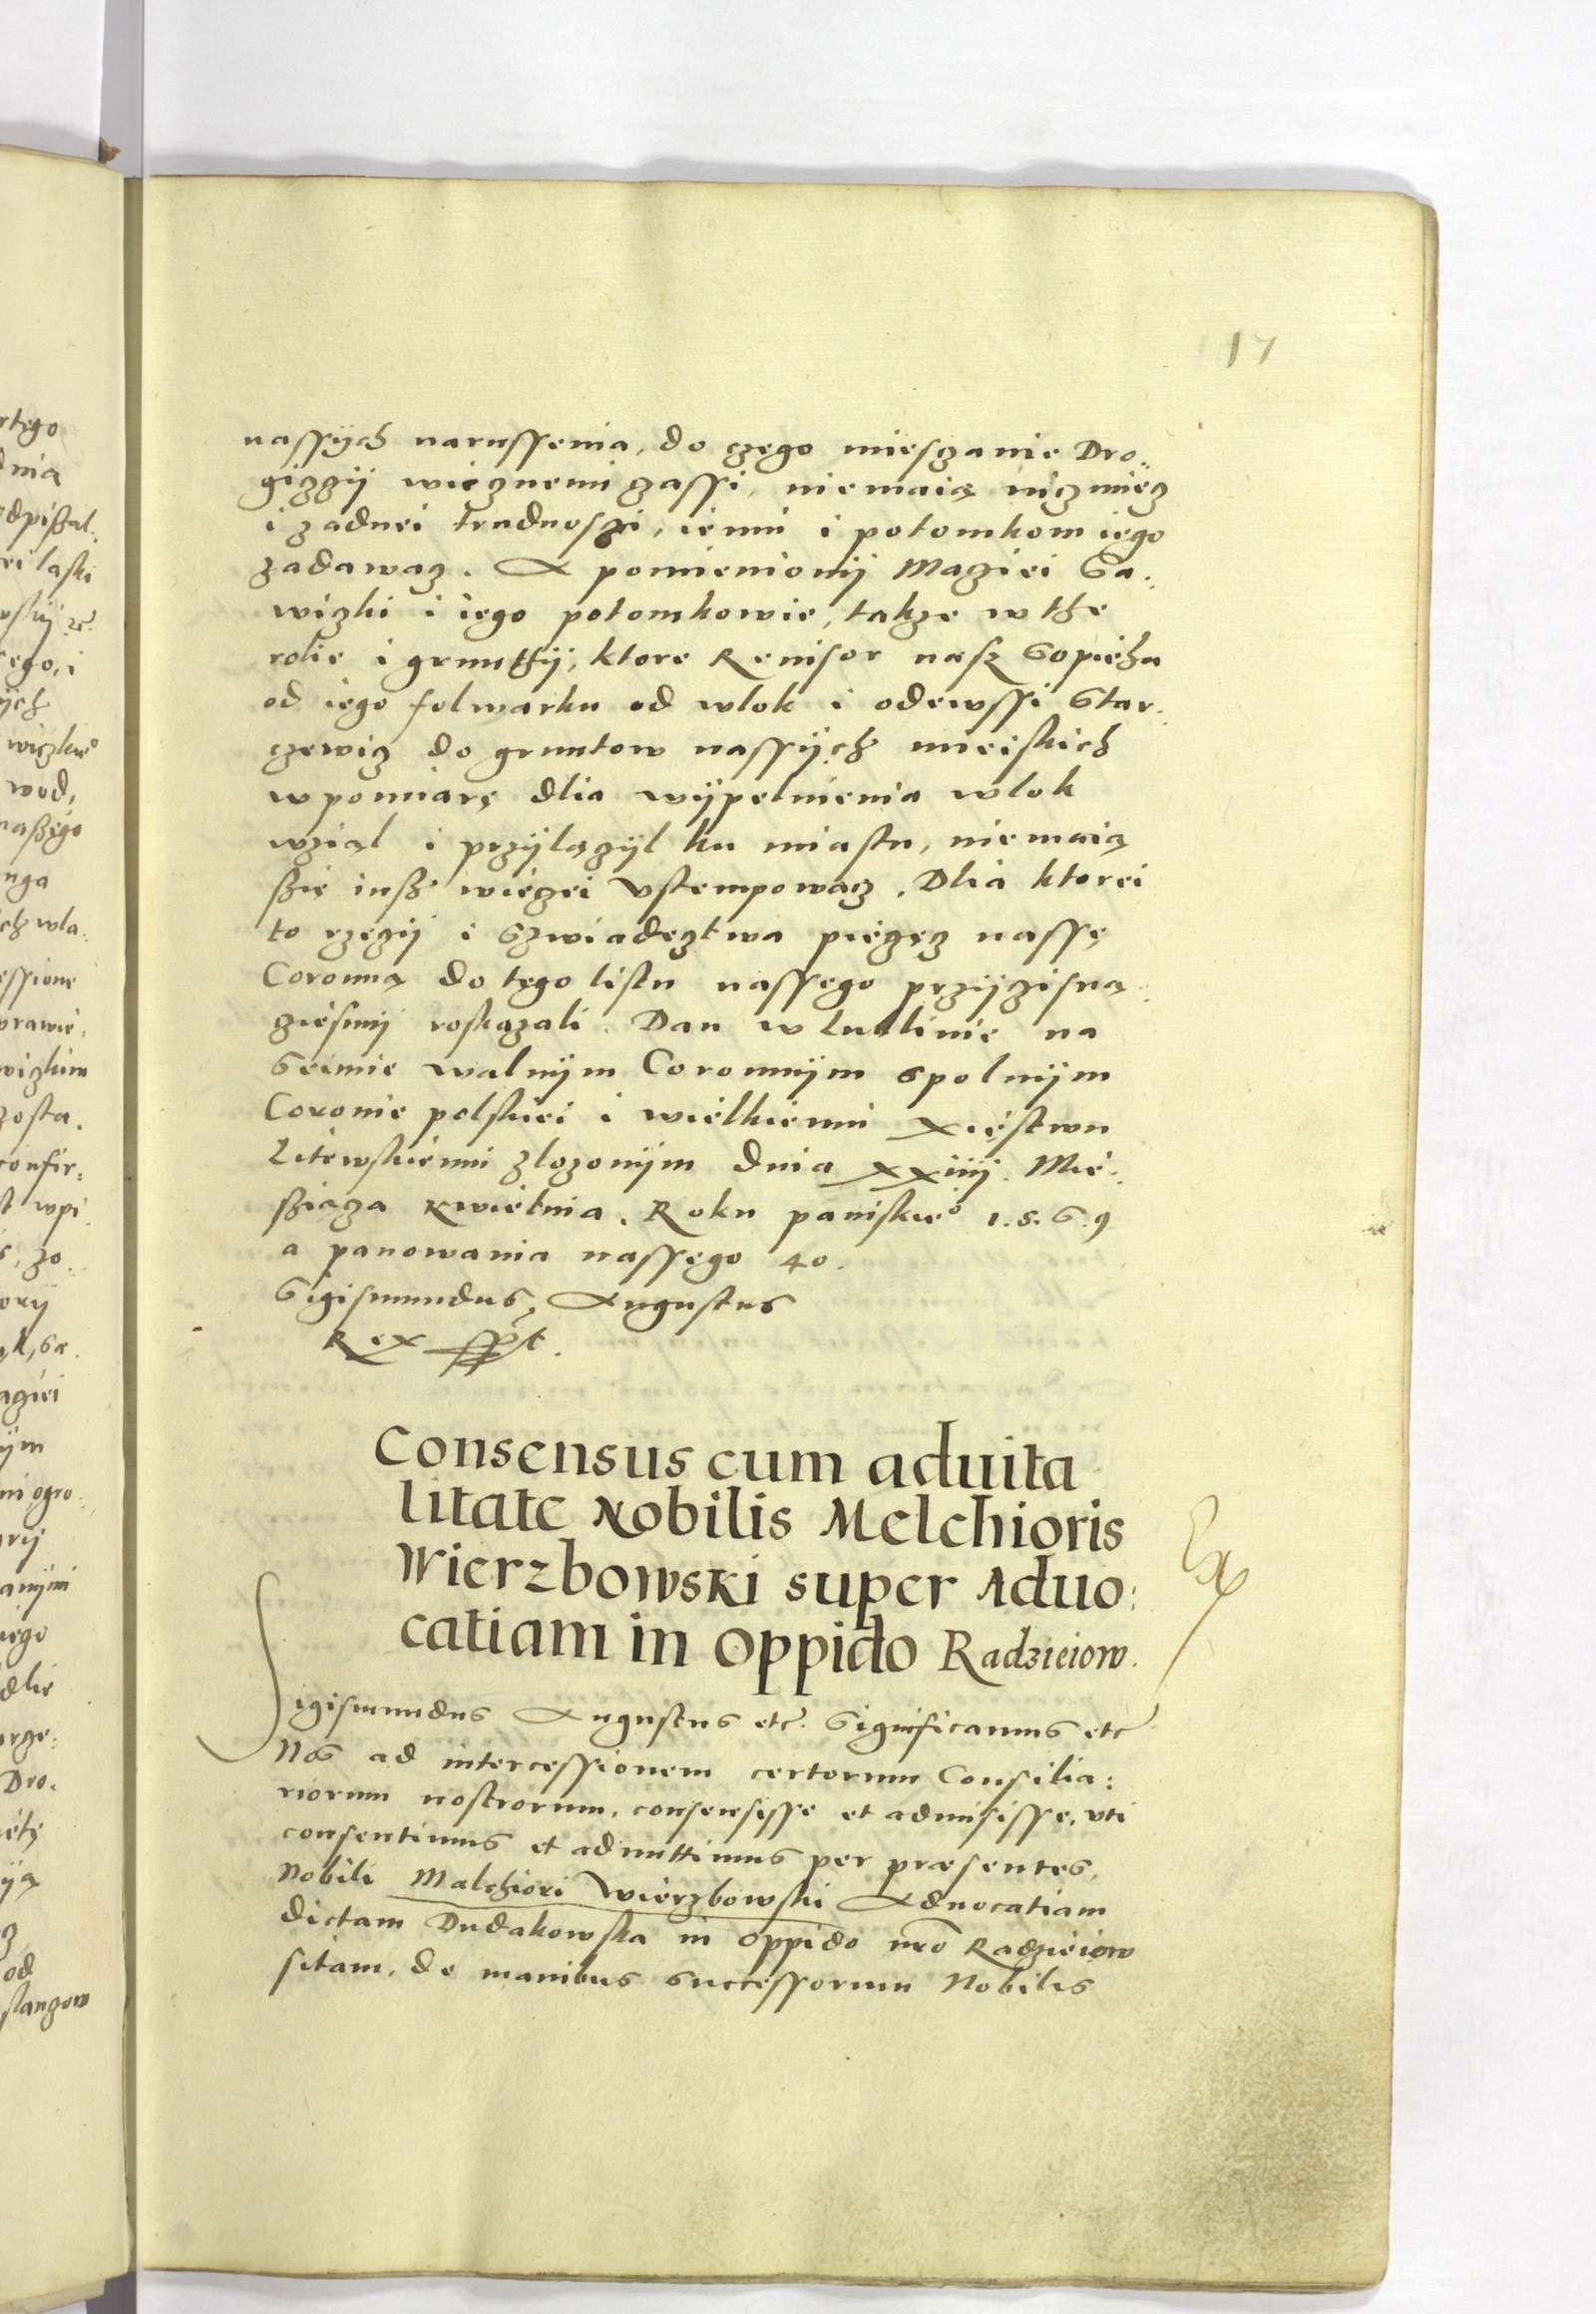 17
nassÿch narussenia, do czego miesczanie Dro„
giczzÿ wiecznemi czassi, niemaią niczmięcz
i zadnei trudnosczi, iemu i potomkom iego
zadawacz. A pomienionÿ Maciei Sa:
wiczki i iego potomkowie, takze w the
rolie i gruntÿ, ktore Reuisor nasz Sopieha
od iego folwarku od wlok i odewssi Star:
czewicz do gruntow nassÿch mieiskich
w pomiarę dlia wÿpelnienia wlok
wziąl i przÿlączÿl ku miastu, niemaią
szie iusz wieczei vstempowacz. Dlia ktorei
to rzeczÿ i Szwiadecztwa pieczęcz nassę
Coronną do tego listu nassego przÿczisną:
cziesmÿ roskazali. Dan w Lublinie na
Seimie walnÿm Coronnÿm spolnÿm
Coronie polskiei i wielkiemu Xięstwu
Litewskiemu zlozonÿm dnia XXiiiÿ. Mie:
sziącza Kwietnia. Roku panskieº 1.5.6.9
a panowania nassego 40.
Sigismundus, Augustus
Rex sspt.
Consensus cum aduita
litate Nobilis Melchioris
Wierzbowski super Aduo:
catiam in oppido Radzieiow.
Ex
Sigismundus Augustus etc. Significamus etc
Nos ad intercessionem certorum Consilia:
riorum nostrorum, consensisse et admisisse, vti
consentimus et admittimus per præsentes,
Nobili Malchiori Wierzbowski Aduocatiam
dictam Dudakowska in oppido nrō Radzieiow
sitam, de manibus successorum Nobilis